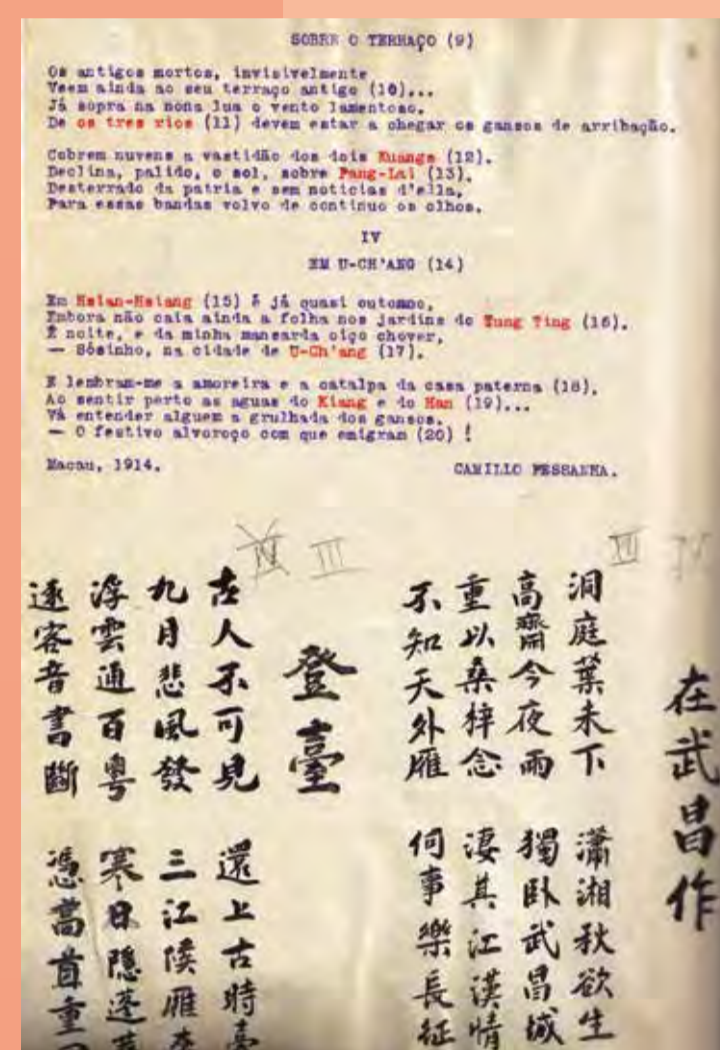 SOBRE O TERRAÇO (9)
Os antigos mortos, invisivelmente
Veem ainda ao seu terraço antigo (10)...
Já sopra na nona lua o vento lamentoso.
De os tres rios (11) devem estar a chegar os gansos de arribação.
Cobrem nuvens a vastidão dos dois Kuangs (12).
Declina, palido, o sol, sobre Pang-Lai (13).
Desterrado da patria e sem noticias d'ella,
Para essas bandas volvo de continuo os olhos.
IV
EM U-CH'ANG (14)
Em Hsian-Hsiang (15) é já quasi outomno,
Embora não caia ainda a folha nos jardins do Tung Ting (16).
É noite, e da minha mansarda oiço chover,
— Sósinho, na cidade de U-Ch'ang (17).
E lembram-me a amoreira e a catalpa da casa paterna (18).
Ao sentir perto as aguas do Kiang e do Han (19)...
Vá entender alguem a grulhada dos gansos,
— O festivo alvoroço com que emigram (20) !
Macau, 1914.
CAMILLO PESSANHA.
III
IV
在武昌作
洞庭葉未下 瀟湘秋欲生
高齋今夜雨 獨臥武昌城
重以桑梓念 淒其江漢情
不知天外雁 何事樂長征
III
登臺
古人不可見 還上古時臺
九月悲風發 三江候雁
浮雲通百粵 寒日隱蓬
遠客音書斷 憑高首重